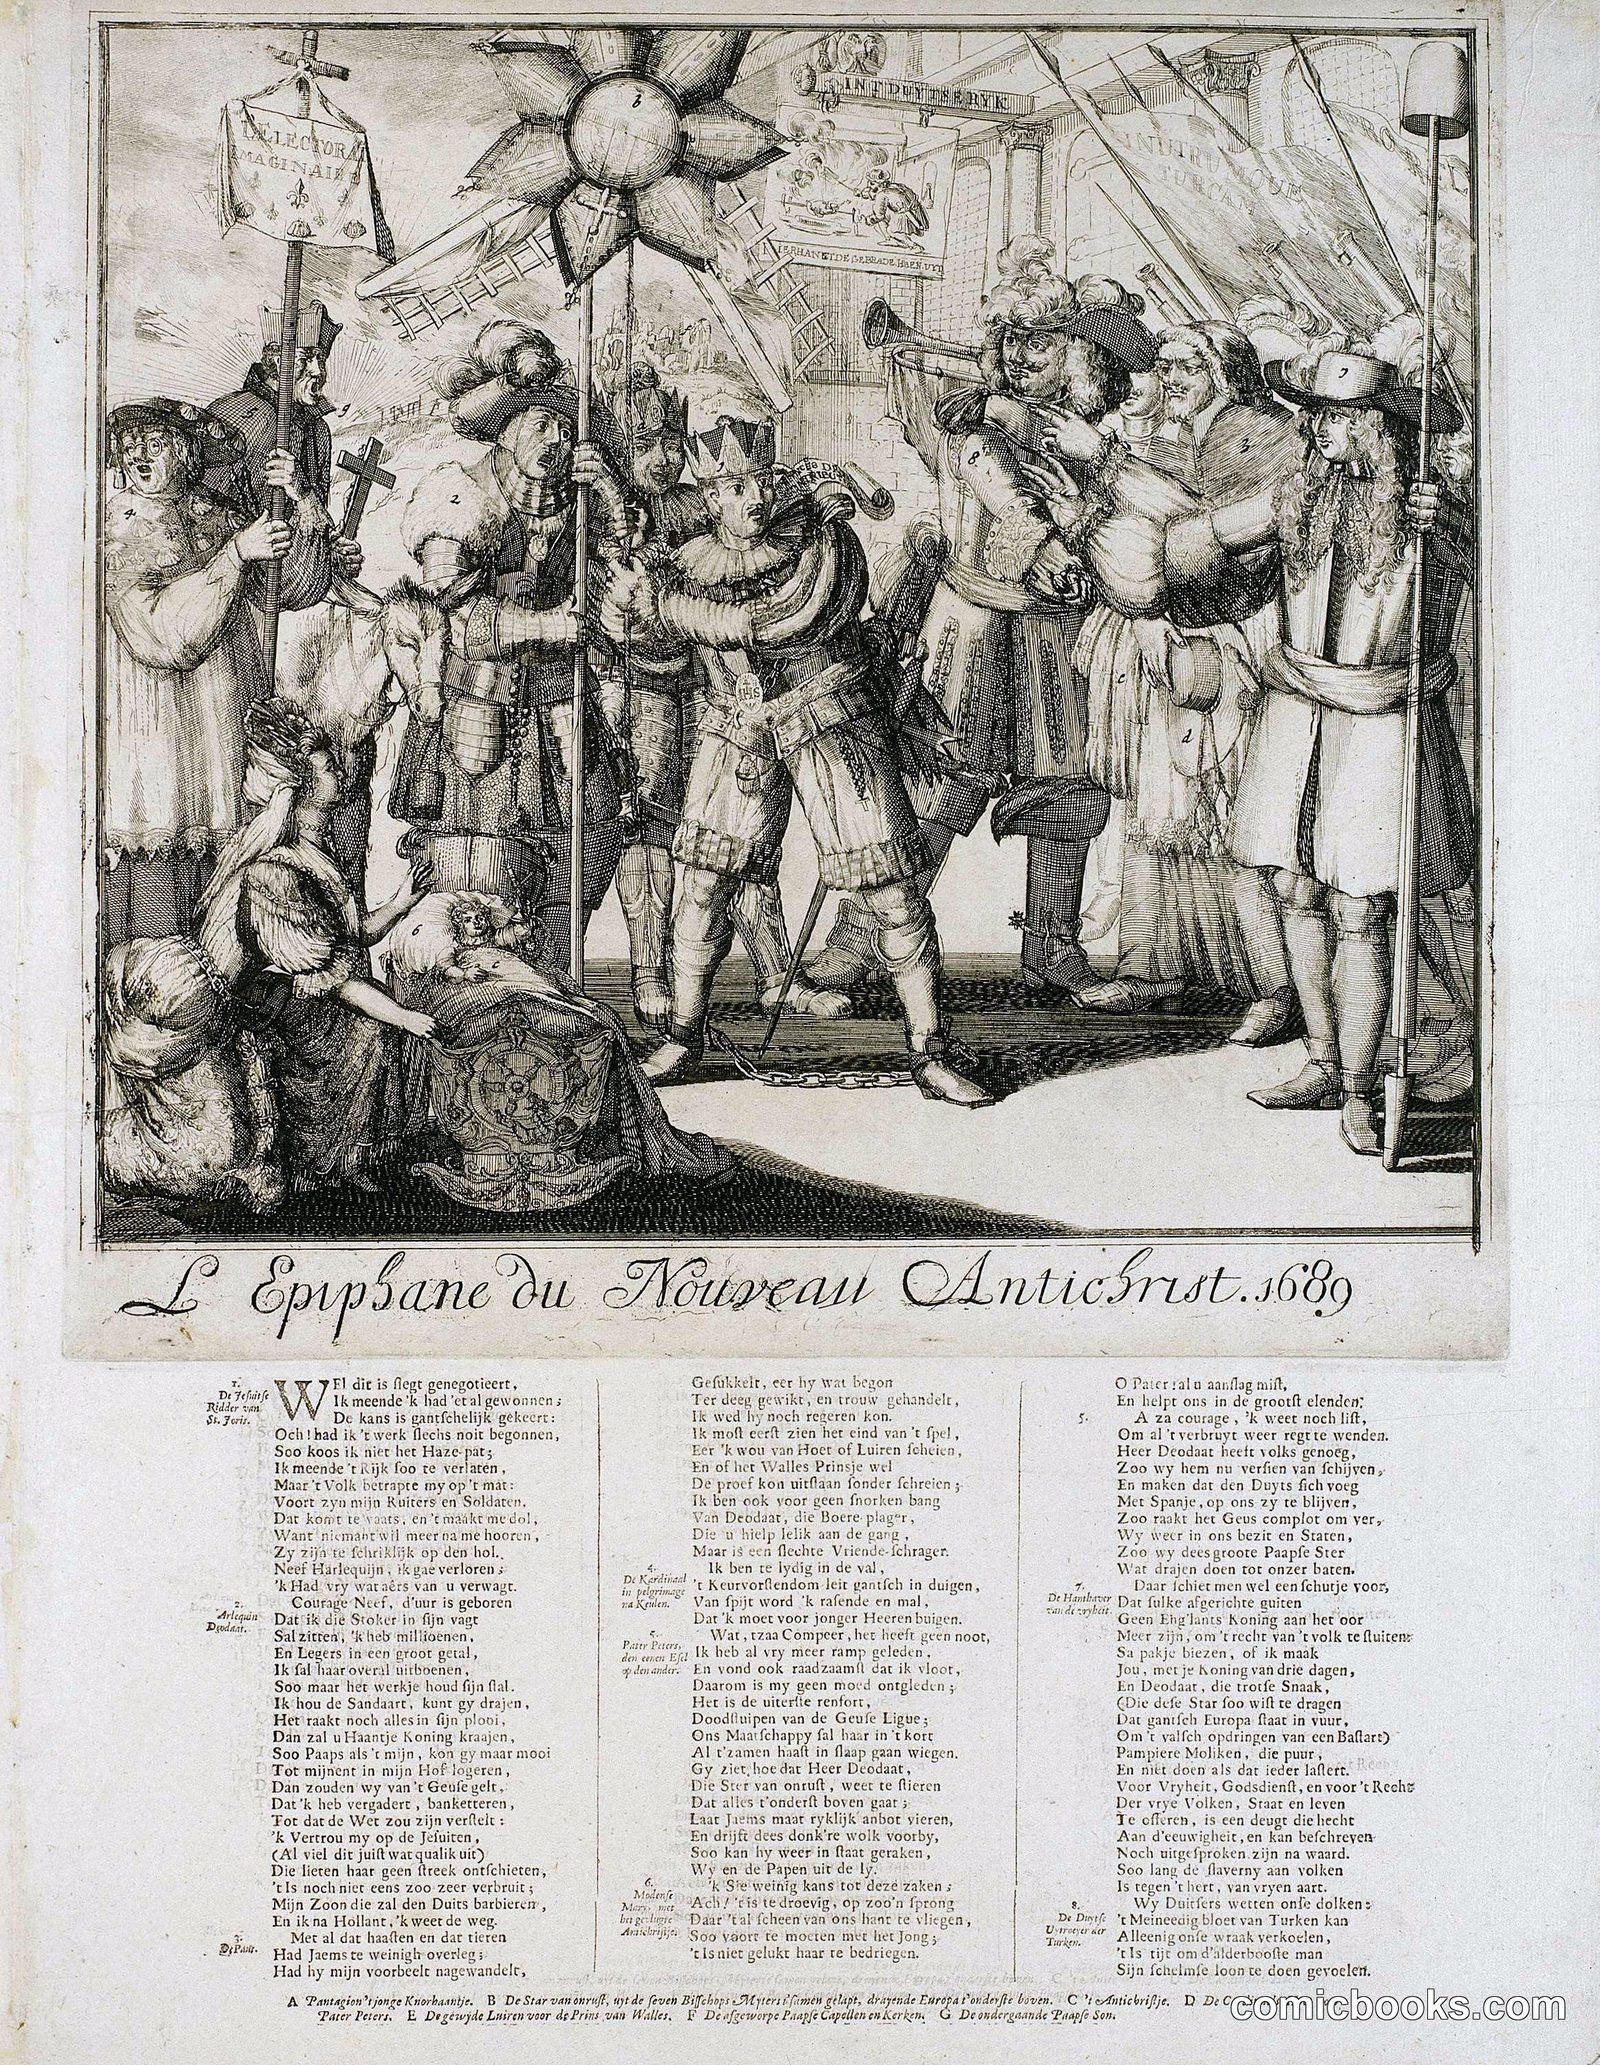 L'ELECTORAT
IMAGINAIRE
INT DUYTSE RYK
HIER HANGT DE GEBRADE HAEN UYT
IN UTRUMQUE
TURCAM
IHS
L Epiphane du Nouveau Antichrist. 1689
1.
De Jesuitse
Ridder van
St. Joris.
WEl dit is slegt genegotieert,
Ik meende 'k had 'et al gewonnen;
De kans is gantschelijk gekeert:
Och! had ik 't werk slechs noit begonnen,
Soo koos ik niet het Haze-pat;
Ik meende 't Rijk soo te verlaten,
Maar 't Volk betrapte my op 't mat:
Voort zyn mijn Ruiters en Soldaten,
Dat komt te vaats, en 't maakt me dol,
Want niemant wil meer na me hooren,
Zy zijn te schriklijk op den hol.
Neef Harlequijn, ik gae verloren;
'k Had vry wat aêrs van u verwagt.
2.
Arlequin
Deodaat.
Courage Neef, d'uur is geboren
Dat ik die Stoker in sijn vagt
Sal zitten, 'k heb millioenen,
En Legers in een groot getal,
Ik sal haar overal uitboenen,
Soo maar het werkje houd sijn stal.
Ik hou de Sandaart, kunt gy drajen,
Het raakt noch alles in sijn plooi,
Dan zal u Haantje Koning kraajen,
Soo Paaps als 't mijn, kon gy maar mooi
Tot mijnent in mijn Hof logeren,
Dan zouden wy van 't Geuse gelt,
Dat 'k heb vergadert, banketteren,
Tot dat de Wet zou zijn verstelt:
'k Vertrou my op de Jesuiten,
(Al viel dit juist wat qualik uit)
Die lieten haar geen streek ontschieten,
't Is noch niet eens zoo zeer verbruit;
Mijn Zoon die zal den Duits barbieren,
En ik na Hollant, 'k weet de weg.
3.
De Paus.
Met al dat haasten en dat tieren
Had Jaems te weinigh overleg;
Had hy mijn voorbeelt nagewandelt,
Gesukkelt, eer hy wat begon
Ter deeg gewikt, en trouw gehandelt,
Ik wed hy noch regeren kon.
Ik most eerst zien het eind van 't spel,
Eer 'k wou van Hoet of Luiren scheien,
En of het Walles Prinsje wel
De proef kon uitstaan sonder schreien;
Ik ben ook voor geen snorken bang
Van Deodaat, die Boere-plager,
Die u hielp lelik aan de gang,
Maar is een slechte Vriende-schrager.
4.
De Kardinaal
in pelgrimage
na Keulen.
Ik ben te lydig in de val,
't Keurvorstendom leit gantsch in duigen,
Van spijt word 'k rasende en mal,
Dat 'k moet voor jonger Heeren buigen.
5.
Pater Peters,
den eenen Esel
op den ander.
Wat, tzaa Compeer, het heeft geen noot,
Ik heb al vry meer ramp geleden,
En vond ook raadzaamst dat ik vloot,
Daarom is my geen moed ontgleden;
Het is de uiterste renfort,
Doodsluipen van de Geuse Ligue;
Ons Maatschappy sal haar in 't kort
Al t'zamen haast in slaap gaan wiegen.
Gy ziet, hoe dat Heer Deodaat,
Die Ster van onrust, weet te stieren
Dat alles t'onderst boven gaat;
Laat Jaems maar ryklijk anbot vieren,
En drijft dees donk're wolk voorby,
Soo kan hy weer in staat geraken,
Wy en de Papen uit de ly.
6.
Modense
Mary, met
het gezugte
Antichristje.
'k Sie weinig kans tot deze zaken;
Ach! 't is te droevig, op zoo'n sprong
Daar 't al scheen van ons hant te vliegen,
Soo voort te moeten met het Jong;
't Is niet gelukt haar te bedriegen.
O Pater: al u aanslag mist,
En helpt ons in de grootst elenden:
5.
A za courage, 'k weet noch list,
Om al 't verbruyt weer regt te wenden.
Heer Deodaat heeft volks genoeg,
Zoo wy hem nu versien van schijven,
En maken dat den Duyts sich voeg
Met Spanje, op ons zy te blijven,
Zoo raakt het Geus complot om ver,
Wy weer in ons bezit en Staten,
Zoo wy dees groote Paapse Ster
Wat drajen doen tot onzer baten.
7.
De Hanthaver
van de vryheit.
Daar schiet men wel een schutje voor,
Dat sulke afgerichte guiten
Geen Eng'lants Koning aan het oor
Meer zijn, om 't recht van 't volk te stuiten:
Sa pakje biezen, of ik maak
Jou, met je Koning van drie dagen,
En Deodaat, die trotse Snaak,
(Die dese Star soo wist te dragen
Dat gantsch Europa staat in vuur,
Om 't valsch opdringen van een Bastart)
Pampiere Moliken, die puur,
En niet doen als dat ieder lastert.
Voor Vryheit, Godsdienst, en voor 't Recht
Der vrye Volken, Staat en leven
Te offeren, is een deugt die hecht
Aan d'eeuwigheit, en kan beschreven
Noch uitgesproken zijn na waard.
Soo lang de slaverny aan volken
Is tegen 't hert, van vryen aart.
8.
De Duytse
Uytroeyer der
Turken.
Wy Duitsers wetten onse dolken:
't Meineedig bloet van Turken kan
Alleenig onse wraak verkoelen,
't Is tijt om d'alderbooste man
Sijn schelmse loon te doen gevoelen.
A Pantagion 't jonge Knorhaantje. B De Star van onrust, uyt de seven Bisschops-Myters t'samen gelapt, drayende Europa t'onderste boven. C 't Antichristje. D De
Pater Peters. E De gewijde Luiren voor de Prins van Walles. F De afgeworpe Paapse Capellen en Kerken. G De ondergaande Paapse Son.
comicbooks.com